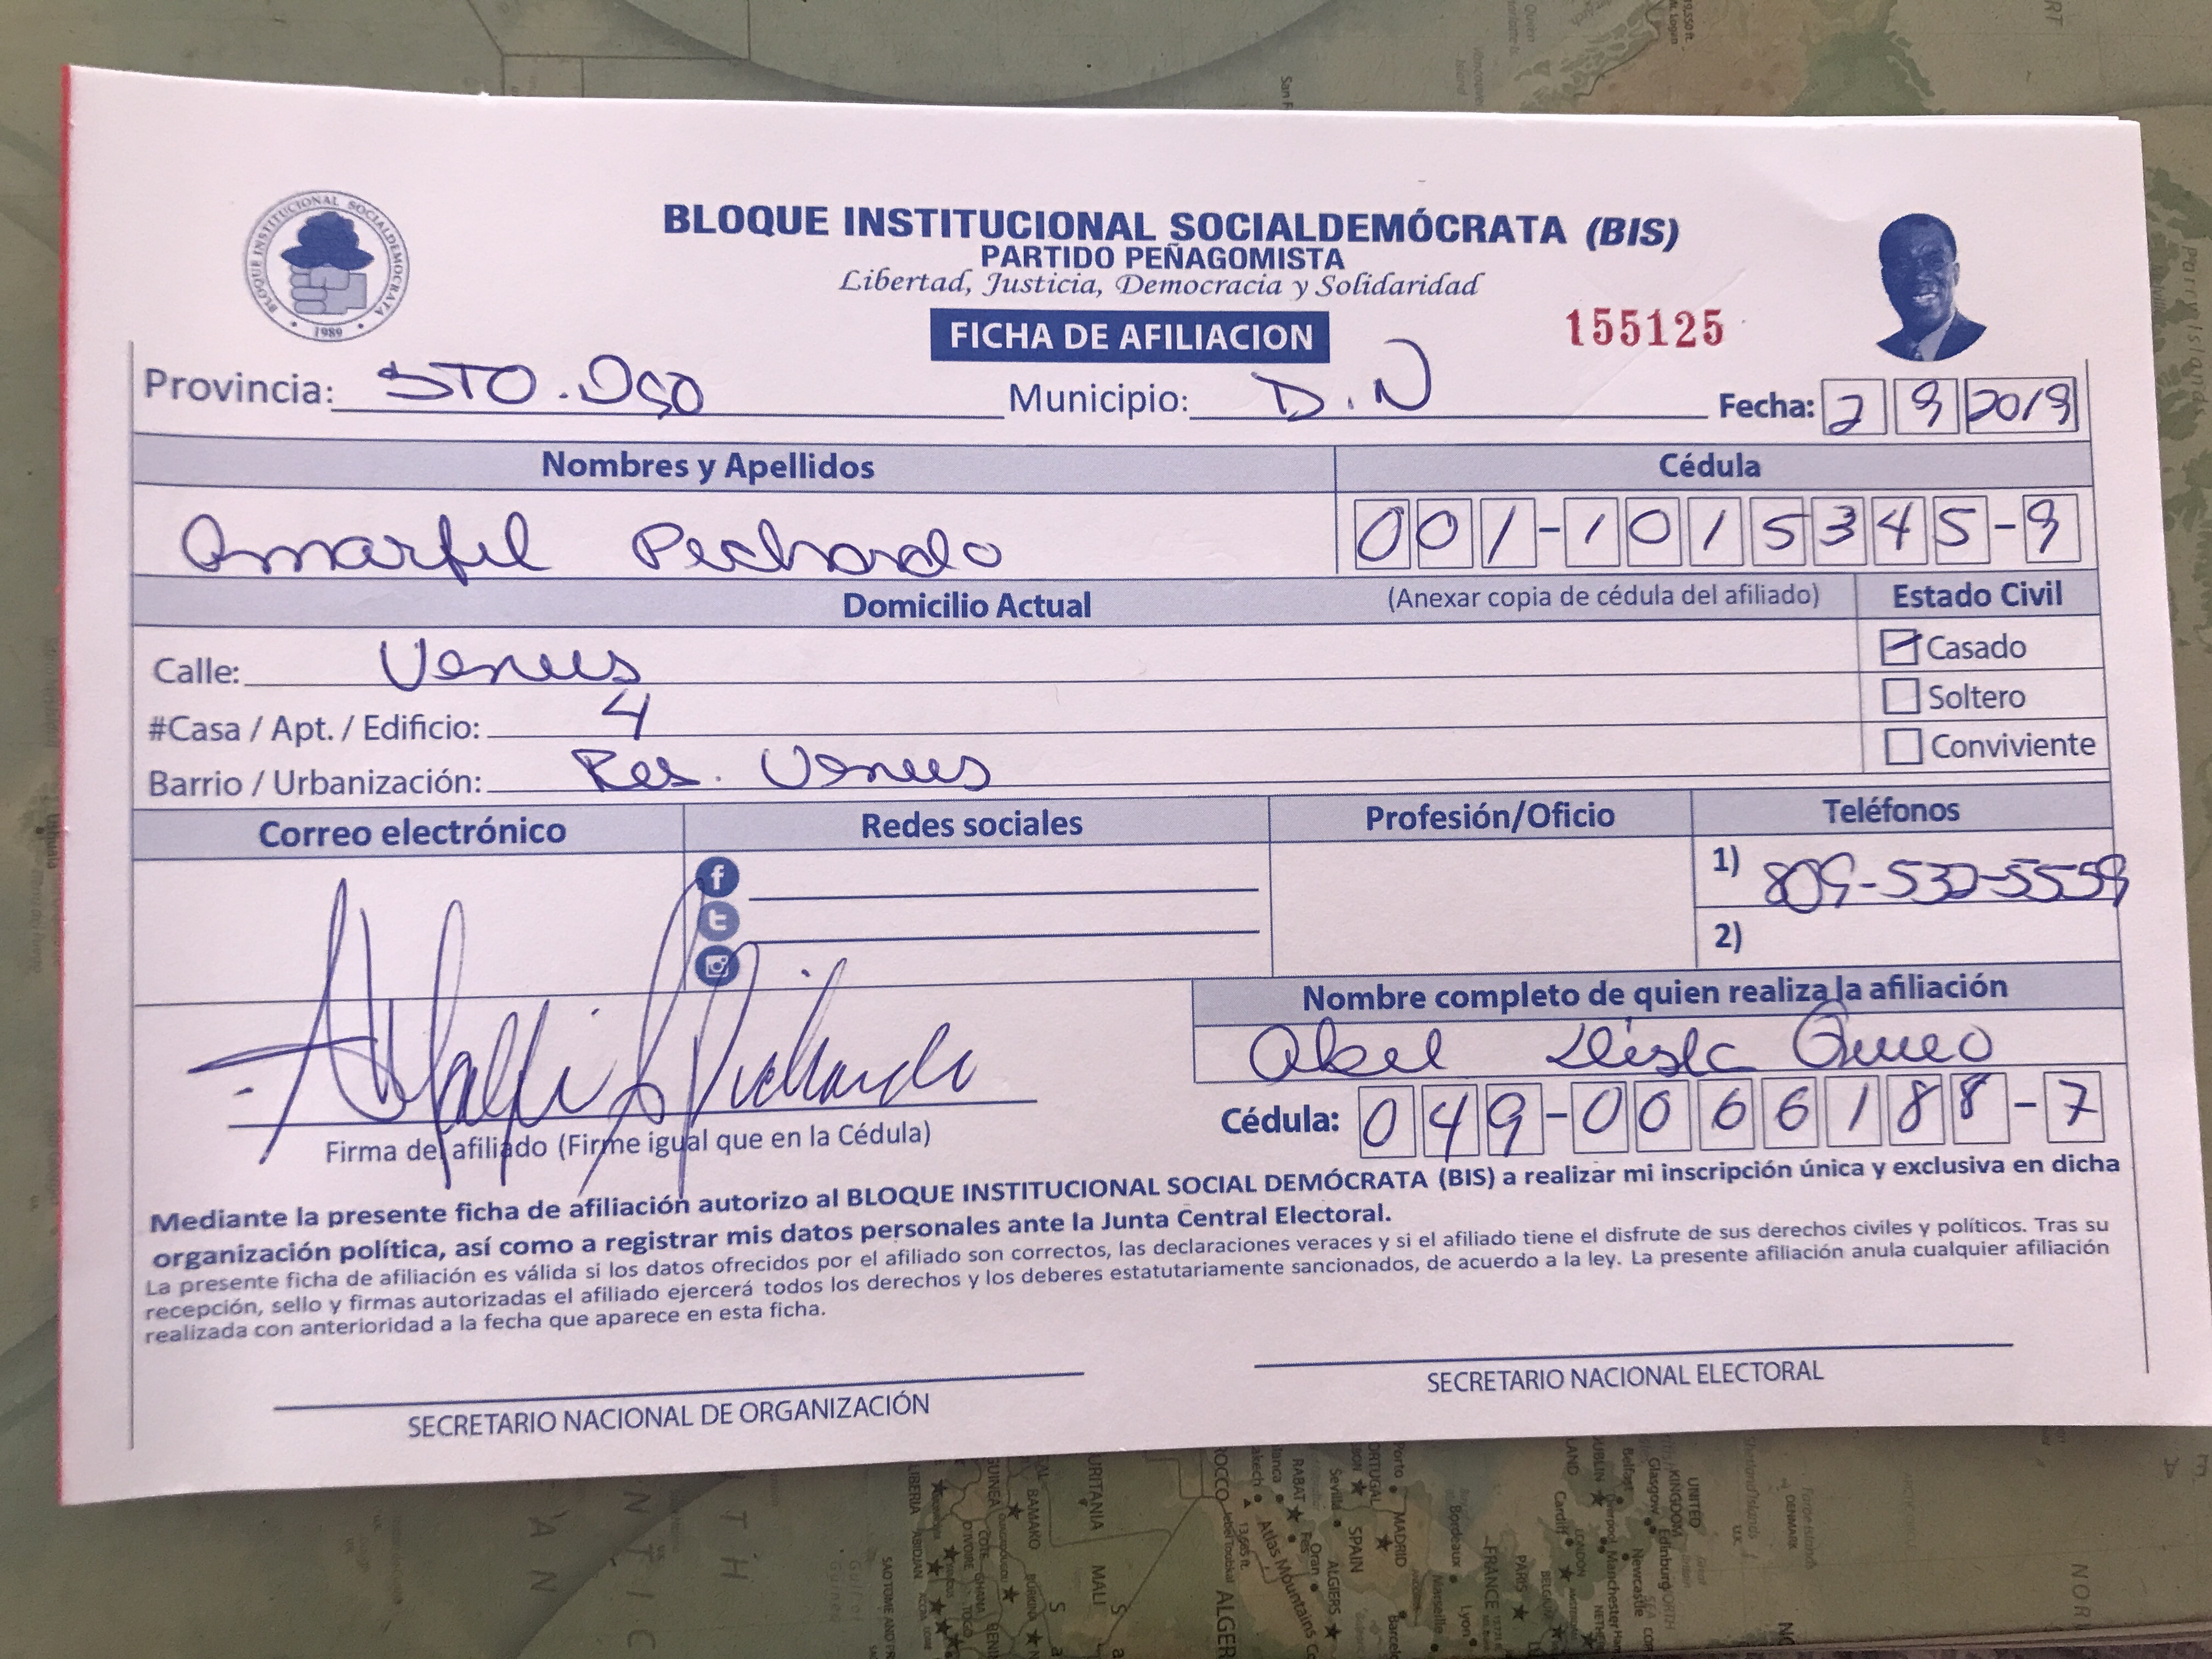 BLOQUE INSTITUCIONAL SOCIALDEMÓCRATA
1989
BLOQUE INSTITUCIONAL SOCIALDEMÓCRATA (BIS)
PARTIDO PEÑAGOMISTA
Libertad, Justicia, Democracia y Solidaridad
FICHA DE AFILIACION
155125
Provincia: STO. DGO Municipio: D. N Fecha: 2 9 2019
Nombres y Apellidos Cédula
Amarfil Pichardo 001-1015345-9
Domicilio Actual (Anexar copia de cédula del afiliado) Estado Civil
Calle: Venus Casado
#Casa / Apt. / Edificio: 4 Soltero
Barrio / Urbanización: Res. Venus Conviviente
Correo electrónico Redes sociales Profesión/Oficio Teléfonos
1) 809-532-5559
2)
Nombre completo de quien realiza la afiliación
Abel
Cédula: 049-0066188-7
Firma del afiliado (Firme igual que en la Cédula)
Mediante la presente ficha de afiliación autorizo al BLOQUE INSTITUCIONAL SOCIAL DEMÓCRATA (BIS) a realizar mi inscripción única y exclusiva en dicha
organización política, así como a registrar mis datos personales ante la Junta Central Electoral.
La presente ficha de afiliación es válida si los datos ofrecidos por el afiliado son correctos, las declaraciones veraces y si el afiliado tiene el disfrute de sus derechos civiles y políticos. Tras su
recepción, sello y firmas autorizadas el afiliado ejercerá todos los derechos y los deberes estatutariamente sancionados, de acuerdo a la ley. La presente afiliación anula cualquier afiliación
realizada con anterioridad a la fecha que aparece en esta ficha.
SECRETARIO NACIONAL DE ORGANIZACIÓN
SECRETARIO NACIONAL ELECTORAL